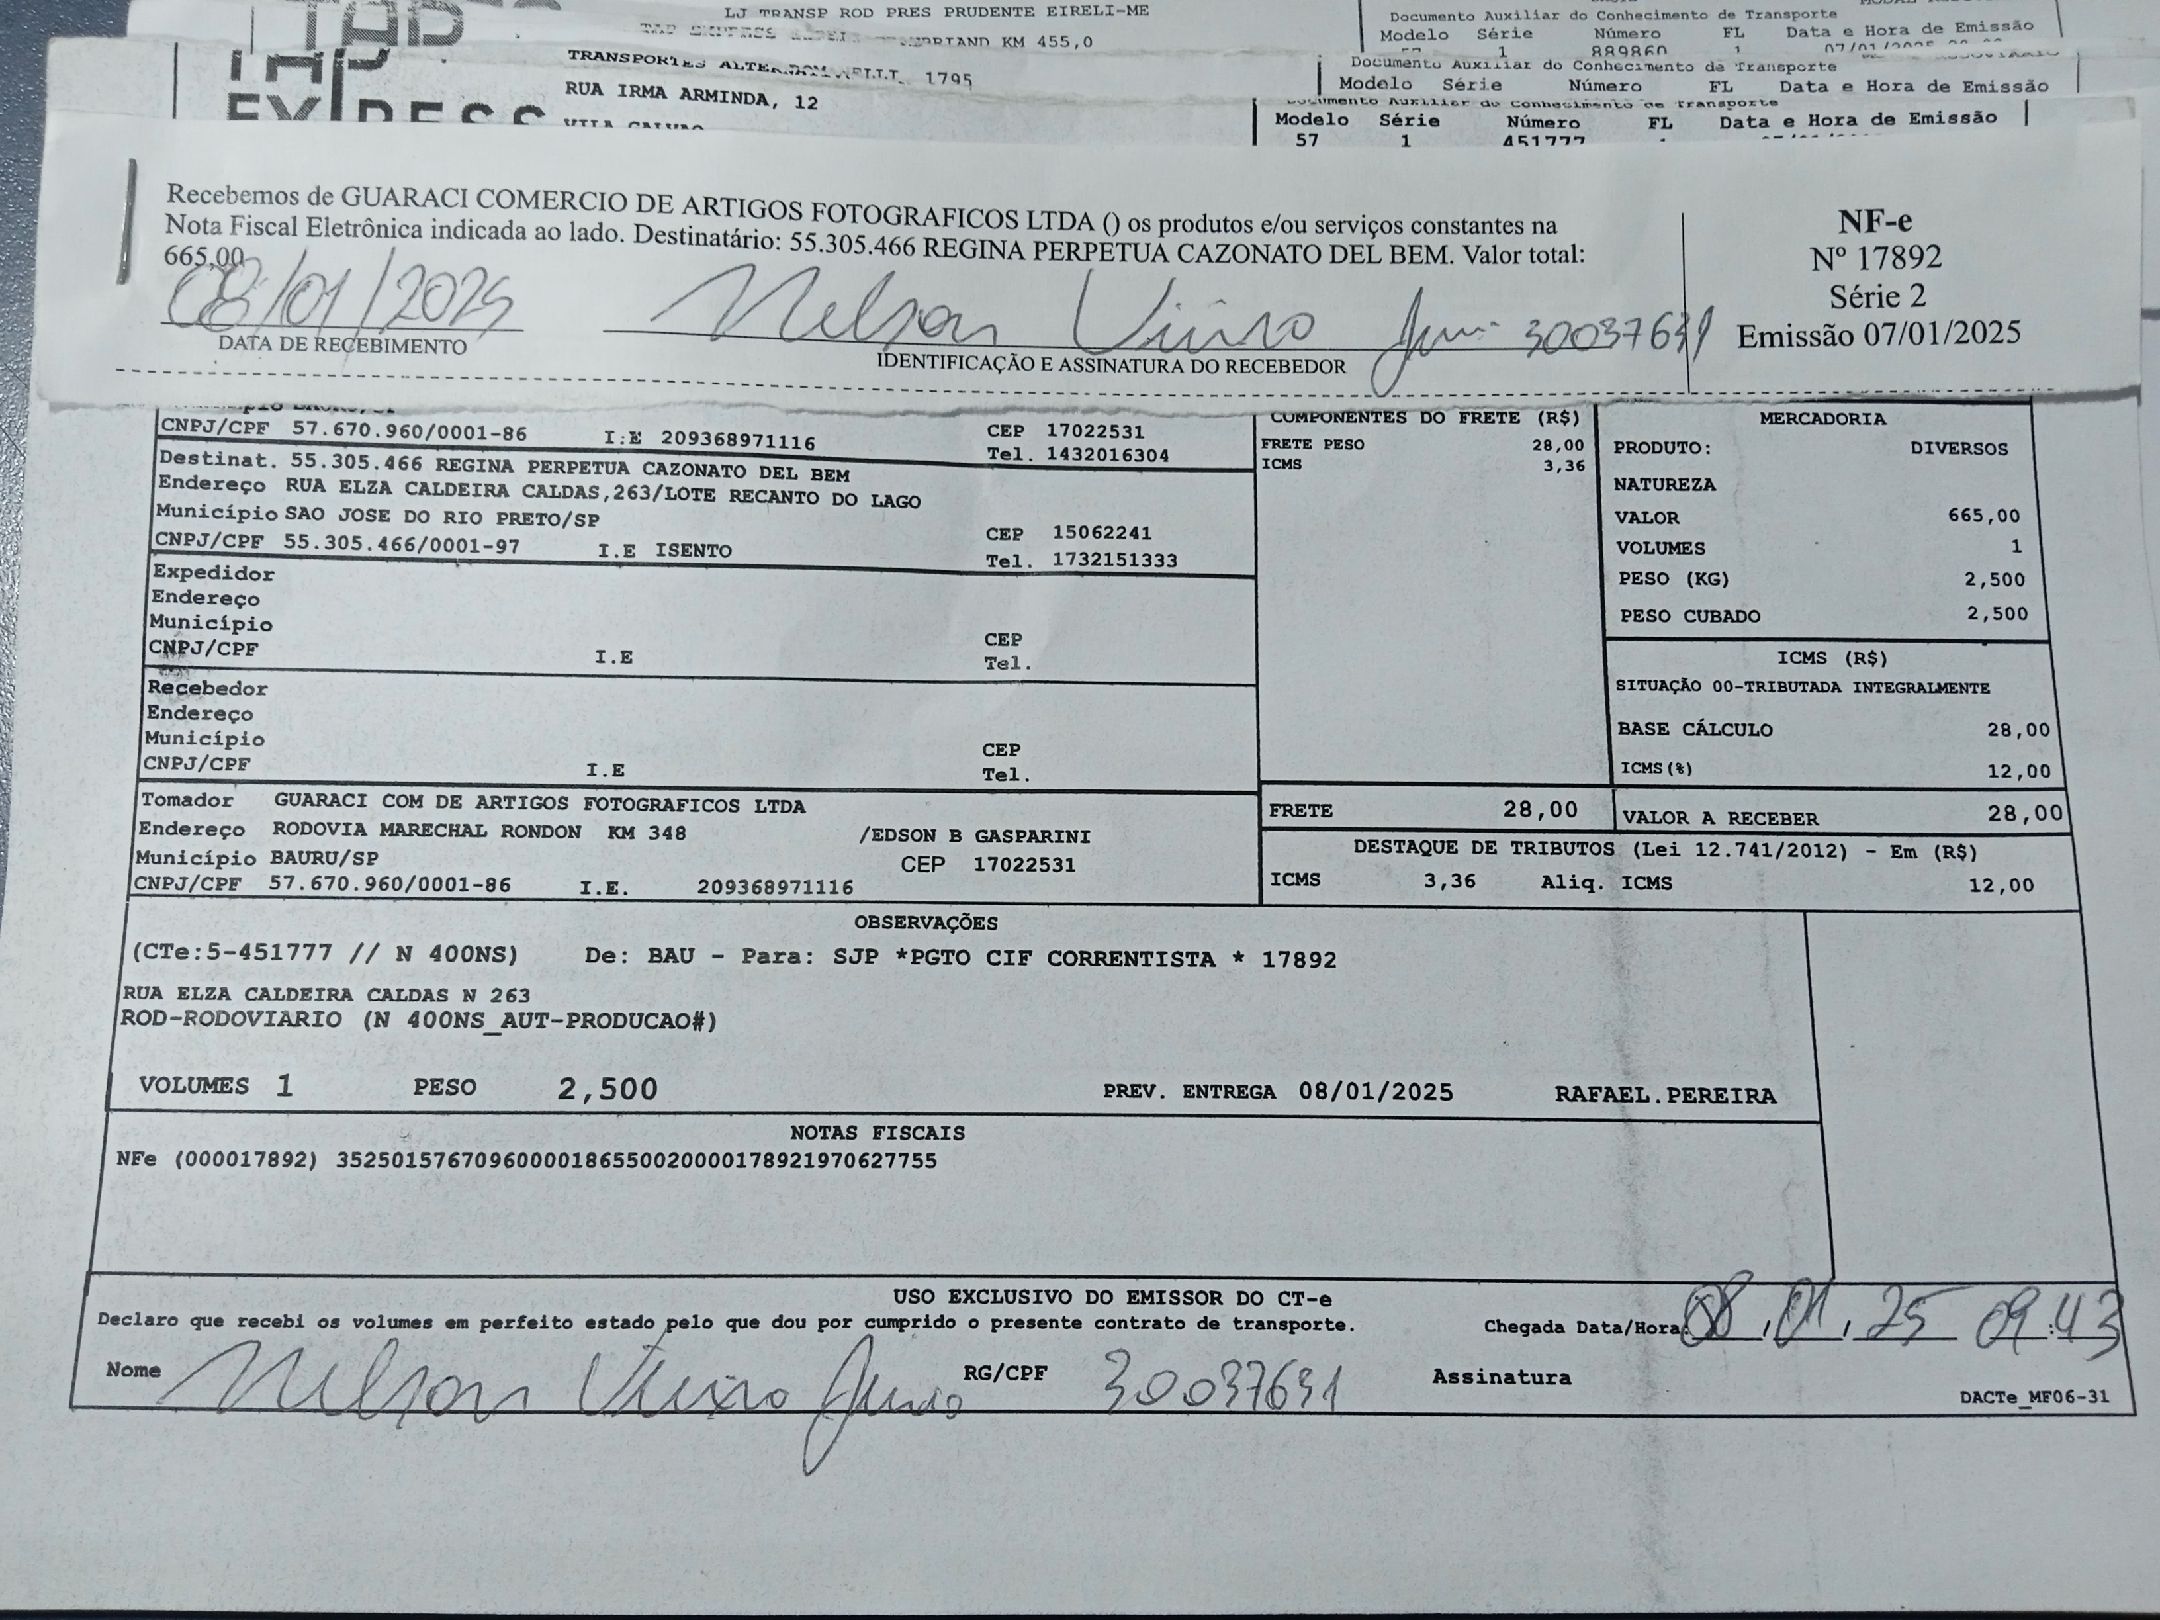 LJ TRANSP ROD PRES PRUDENTE EIRELI-ME
KM 455,0
Documento Auxiliar do Conhecimento de Transporte
Modelo Série Número FL Data e Hora de Emissão
1 889860 1
TRANSPORTES 1795
RUA IRMA ARMINDA, 12
Documento Auxiliar do Conhecimento de Transporte
Modelo Série Número FL Data e Hora de Emissão
EXPRESS
Documento Auxiliar do Conhecimento de Transporte
Modelo Série Número FL Data e Hora de Emissão
57 1 451777
Recebemos de GUARACI COMERCIO DE ARTIGOS FOTOGRAFICOS LTDA () os produtos e/ou serviços constantes na
Nota Fiscal Eletrônica indicada ao lado. Destinatário: 55.305.466 REGINA PERPETUA CAZONATO DEL BEM. Valor total:
665,00
08/01/2025 Nelson 30037631
DATA DE RECEBIMENTO
IDENTIFICAÇÃO E ASSINATURA DO RECEBEDOR
NF-e
Nº 17892
Série 2
Emissão 07/01/2025
CNPJ/CPF 57.670.960/0001-86 I.E 209368971116
CEP 17022531
Tel. 1432016304
Destinat. 55.305.466 REGINA PERPETUA CAZONATO DEL BEM
Endereço RUA ELZA CALDEIRA CALDAS,263/LOTE RECANTO DO LAGO
Município SAO JOSE DO RIO PRETO/SP CEP 15062241
CNPJ/CPF 55.305.466/0001-97 I.E ISENTO Tel. 1732151333
Expedidor
Endereço
Município CEP
CNPJ/CPF I.E Tel.
Recebedor
Endereço
Município CEP
CNPJ/CPF I.E Tel.
Tomador GUARACI COM DE ARTIGOS FOTOGRAFICOS LTDA
Endereço RODOVIA MARECHAL RONDON KM 348 /EDSON B GASPARINI
Município BAURU/SP CEP 17022531
CNPJ/CPF 57.670.960/0001-86 I.E. 209368971116
COMPONENTES DO FRETE (R$)
FRETE PESO 28,00
ICMS 3,36
MERCADORIA
PRODUTO: DIVERSOS
NATUREZA
VALOR 665,00
VOLUMES 1
PESO (KG) 2,500
PESO CUBADO 2,500
ICMS (R$)
SITUAÇÃO 00-TRIBUTADA INTEGRALMENTE
BASE CÁLCULO 28,00
ICMS(%) 12,00
FRETE 28,00 VALOR A RECEBER 28,00
DESTAQUE DE TRIBUTOS (Lei 12.741/2012) - Em (R$)
ICMS 3,36 Aliq. ICMS 12,00
OBSERVAÇÕES
(CTe:5-451777 // N 400NS) De: BAU - Para: SJP *PGTO CIF CORRENTISTA * 17892
RUA ELZA CALDEIRA CALDAS N 263
ROD-RODOVIARIO (N 400NS_AUT-PRODUCAO#)
VOLUMES 1 PESO 2,500 PREV. ENTREGA 08/01/2025 RAFAEL.PEREIRA
NOTAS FISCAIS
NFe (000017892) 35250157670960000186550020000178921970627755
USO EXCLUSIVO DO EMISSOR DO CT-e
Declaro que recebi os volumes em perfeito estado pelo que dou por cumprido o presente contrato de transporte. Chegada Data/Hora 08/01/25 09:43
Nome Nelson RG/CPF 30037631 Assinatura
DACTe_MF06-31